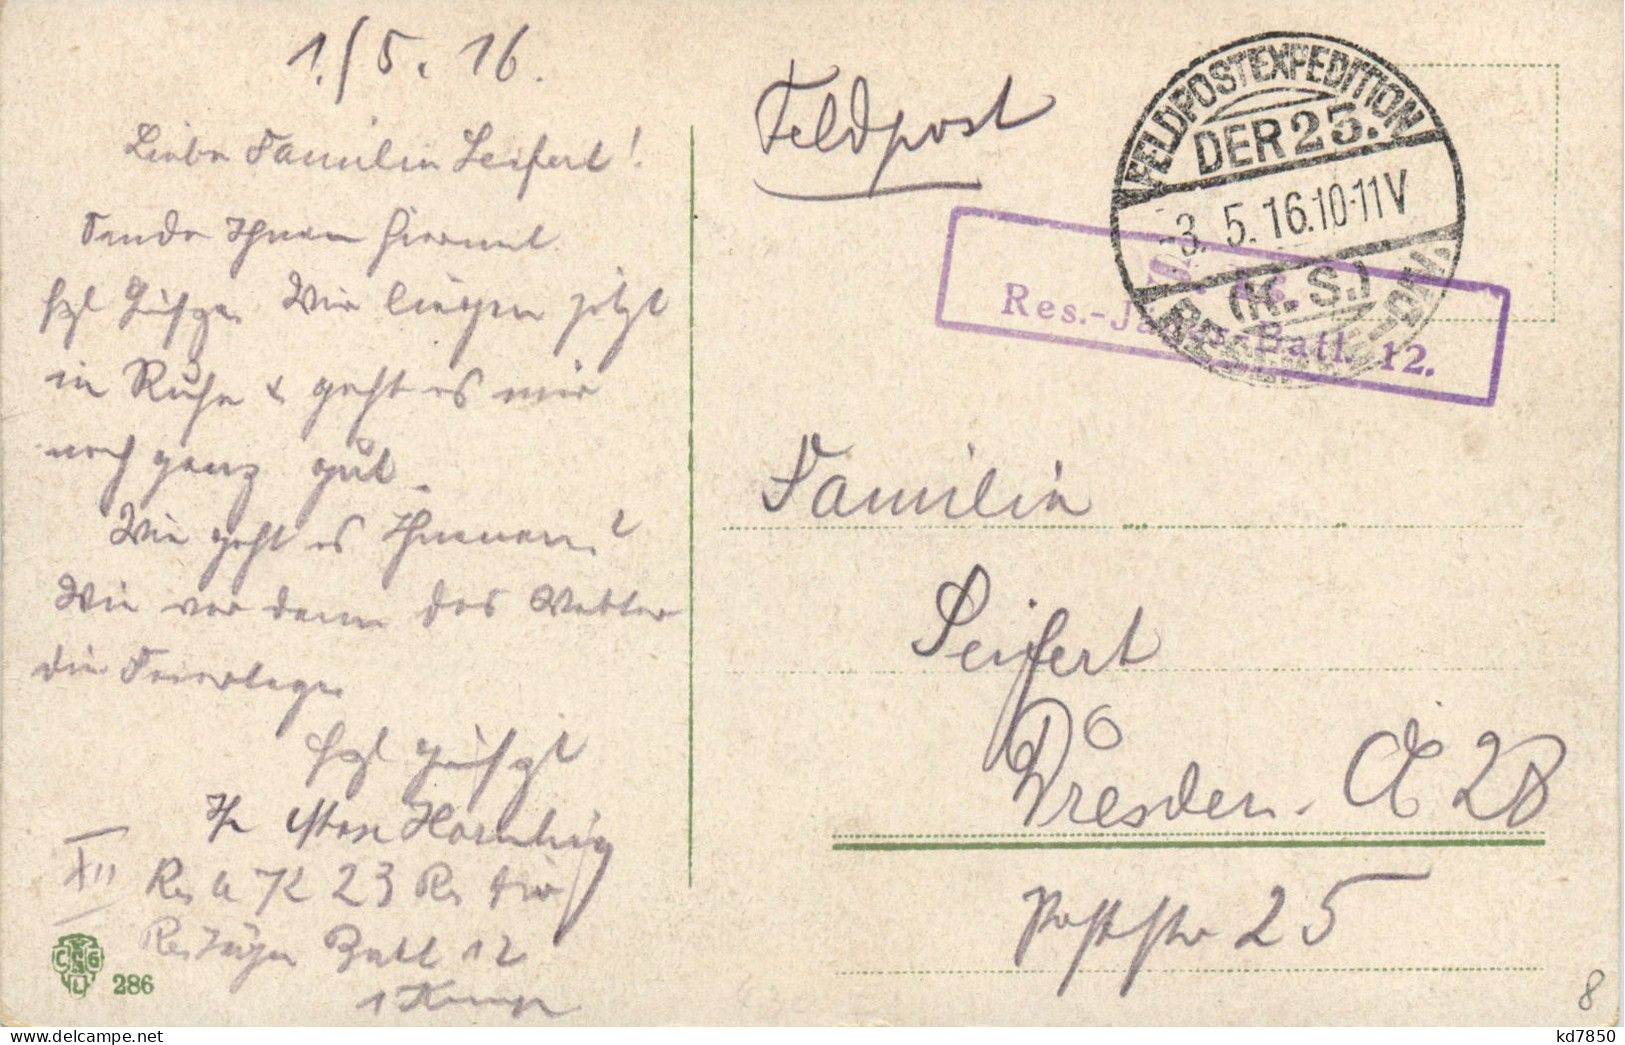 1./5. 16.
Liebe Familie Seifert!
Sende Ihnen hiermit
hzl Grüsse. Wir liegen jetzt
in Ruhe & geht es mir
noch ganz gut.
Wie geht es Ihnenen?
Wie war denn das Wetter
die Feiertage
hzl grüsst
Ihr Max
XII Res A K 23 Res Div
Res Jäger Batl 12
1 Komp
CSGL
286
Feldpost
FELDPOSTEXPEDITION
DER 23.
-3. 5. 16. 10-11V
(K. S.)
RESERVE-DIV.
Res.-Jäg.-Batl. 12.
Familie
Seifert
Dresden. A 28
Poststr 25
8
kd7850